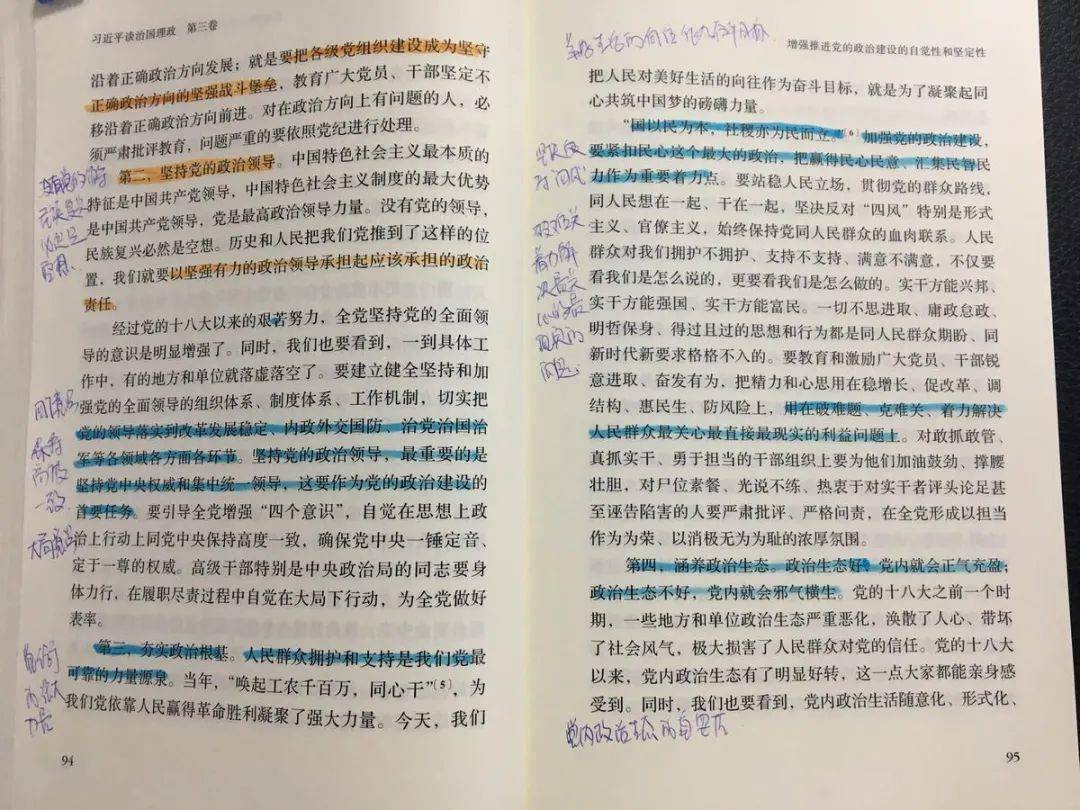 习近平谈治国理政 第三卷
沿着正确政治方向发展；就是要把各级党组织建设成为坚守
正确政治方向的坚强战斗堡垒，教育广大党员、干部坚定不
移沿着正确政治方向前进。对在政治方向上有问题的人，必
须严肃批评教育，问题严重的要依照党纪进行处理。
第二，坚持党的政治领导。中国特色社会主义最本质的
特征是中国共产党领导，中国特色社会主义制度的最大优势
是中国共产党领导，党是最高政治领导力量。没有党的领导，
民族复兴必然是空想。历史和人民把我们党推到了这样的位
置，我们就要以坚强有力的政治领导承担起应该承担的政治
责任。
经过党的十八大以来的艰苦努力，全党坚持党的全面领
导的意识是明显增强了。同时，我们也要看到，一到具体工
作中，有的地方和单位就落虚落空了。要建立健全坚持和加
强党的全面领导的组织体系、制度体系、工作机制，切实把
党的领导落实到改革发展稳定、内政外交国防、治党治国治
军等各领域各方面各环节。坚持党的政治领导，最重要的是
坚持党中央权威和集中统一领导，这要作为党的政治建设的
首要任务。要引导全党增强“四个意识”，自觉在思想上政
治上行动上同党中央保持高度一致，确保党中央一锤定音、
定于一尊的权威。高级干部特别是中央政治局的同志要身
体力行，在履职尽责过程中自觉在大局下行动，为全党做好
表率。
第三，夯实政治根基。人民群众拥护和支持是我们党最
可靠的力量源泉。当年，“唤起工农千百万，同心干”〔5〕，为
我们党依靠人民赢得革命胜利凝聚了强大力量。今天，我们
保持
高度
一致
94
增强推进党的政治建设的自觉性和坚定性
把人民对美好生活的向往作为奋斗目标，就是为了凝聚起
同心共筑中国梦的磅礴力量。
“国以民为本，社稷亦为民而立。”〔6〕加强党的政治建设，
要紧扣民心这个最大的政治，把赢得民心民意、汇集民智民
力作为重要着力点。要站稳人民立场，贯彻党的群众路线，
同人民想在一起、干在一起，坚决反对“四风”特别是形式
主义、官僚主义，始终保持党同人民群众的血肉联系。人民
群众对我们拥护不拥护、支持不支持、满意不满意，不仅要
看我们是怎么说的，更要看我们是怎么做的。实干方能兴邦、
实干方能强国、实干方能富民。一切不思进取、庸政怠政、
明哲保身、得过且过的思想和行为都是同人民群众期盼、同
新时代新要求格格不入的。要教育和激励广大党员、干部锐
意进取、奋发有为，把精力和心思用在稳增长、促改革、调
结构、惠民生、防风险上，用在破难题、克难关、着力解决
人民群众最关心最直接最现实的利益问题上。对敢抓敢管、
真抓实干、勇于担当的干部组织上要为他们加油鼓劲、撑腰
壮胆，对尸位素餐、光说不练、热衷于对实干者评头论足甚
至诬告陷害的人要严肃批评、严格问责，在全党形成以担当
作为为荣、以消极无为为耻的浓厚氛围。
第四，涵养政治生态。政治生态好，党内就会正气充盈；
政治生态不好，党内就会邪气横生。党的十八大之前一个时
期，一些地方和单位政治生态严重恶化，涣散了人心、带坏
了社会风气，极大损害了人民群众对党的信任。党的十八大
以来，党内政治生态有了明显好转，这一点大家都能亲身感
受到。同时，我们也要看到，党内政治生活随意化、形式化、
着力解
决最关
心的最
现实的
问题
95